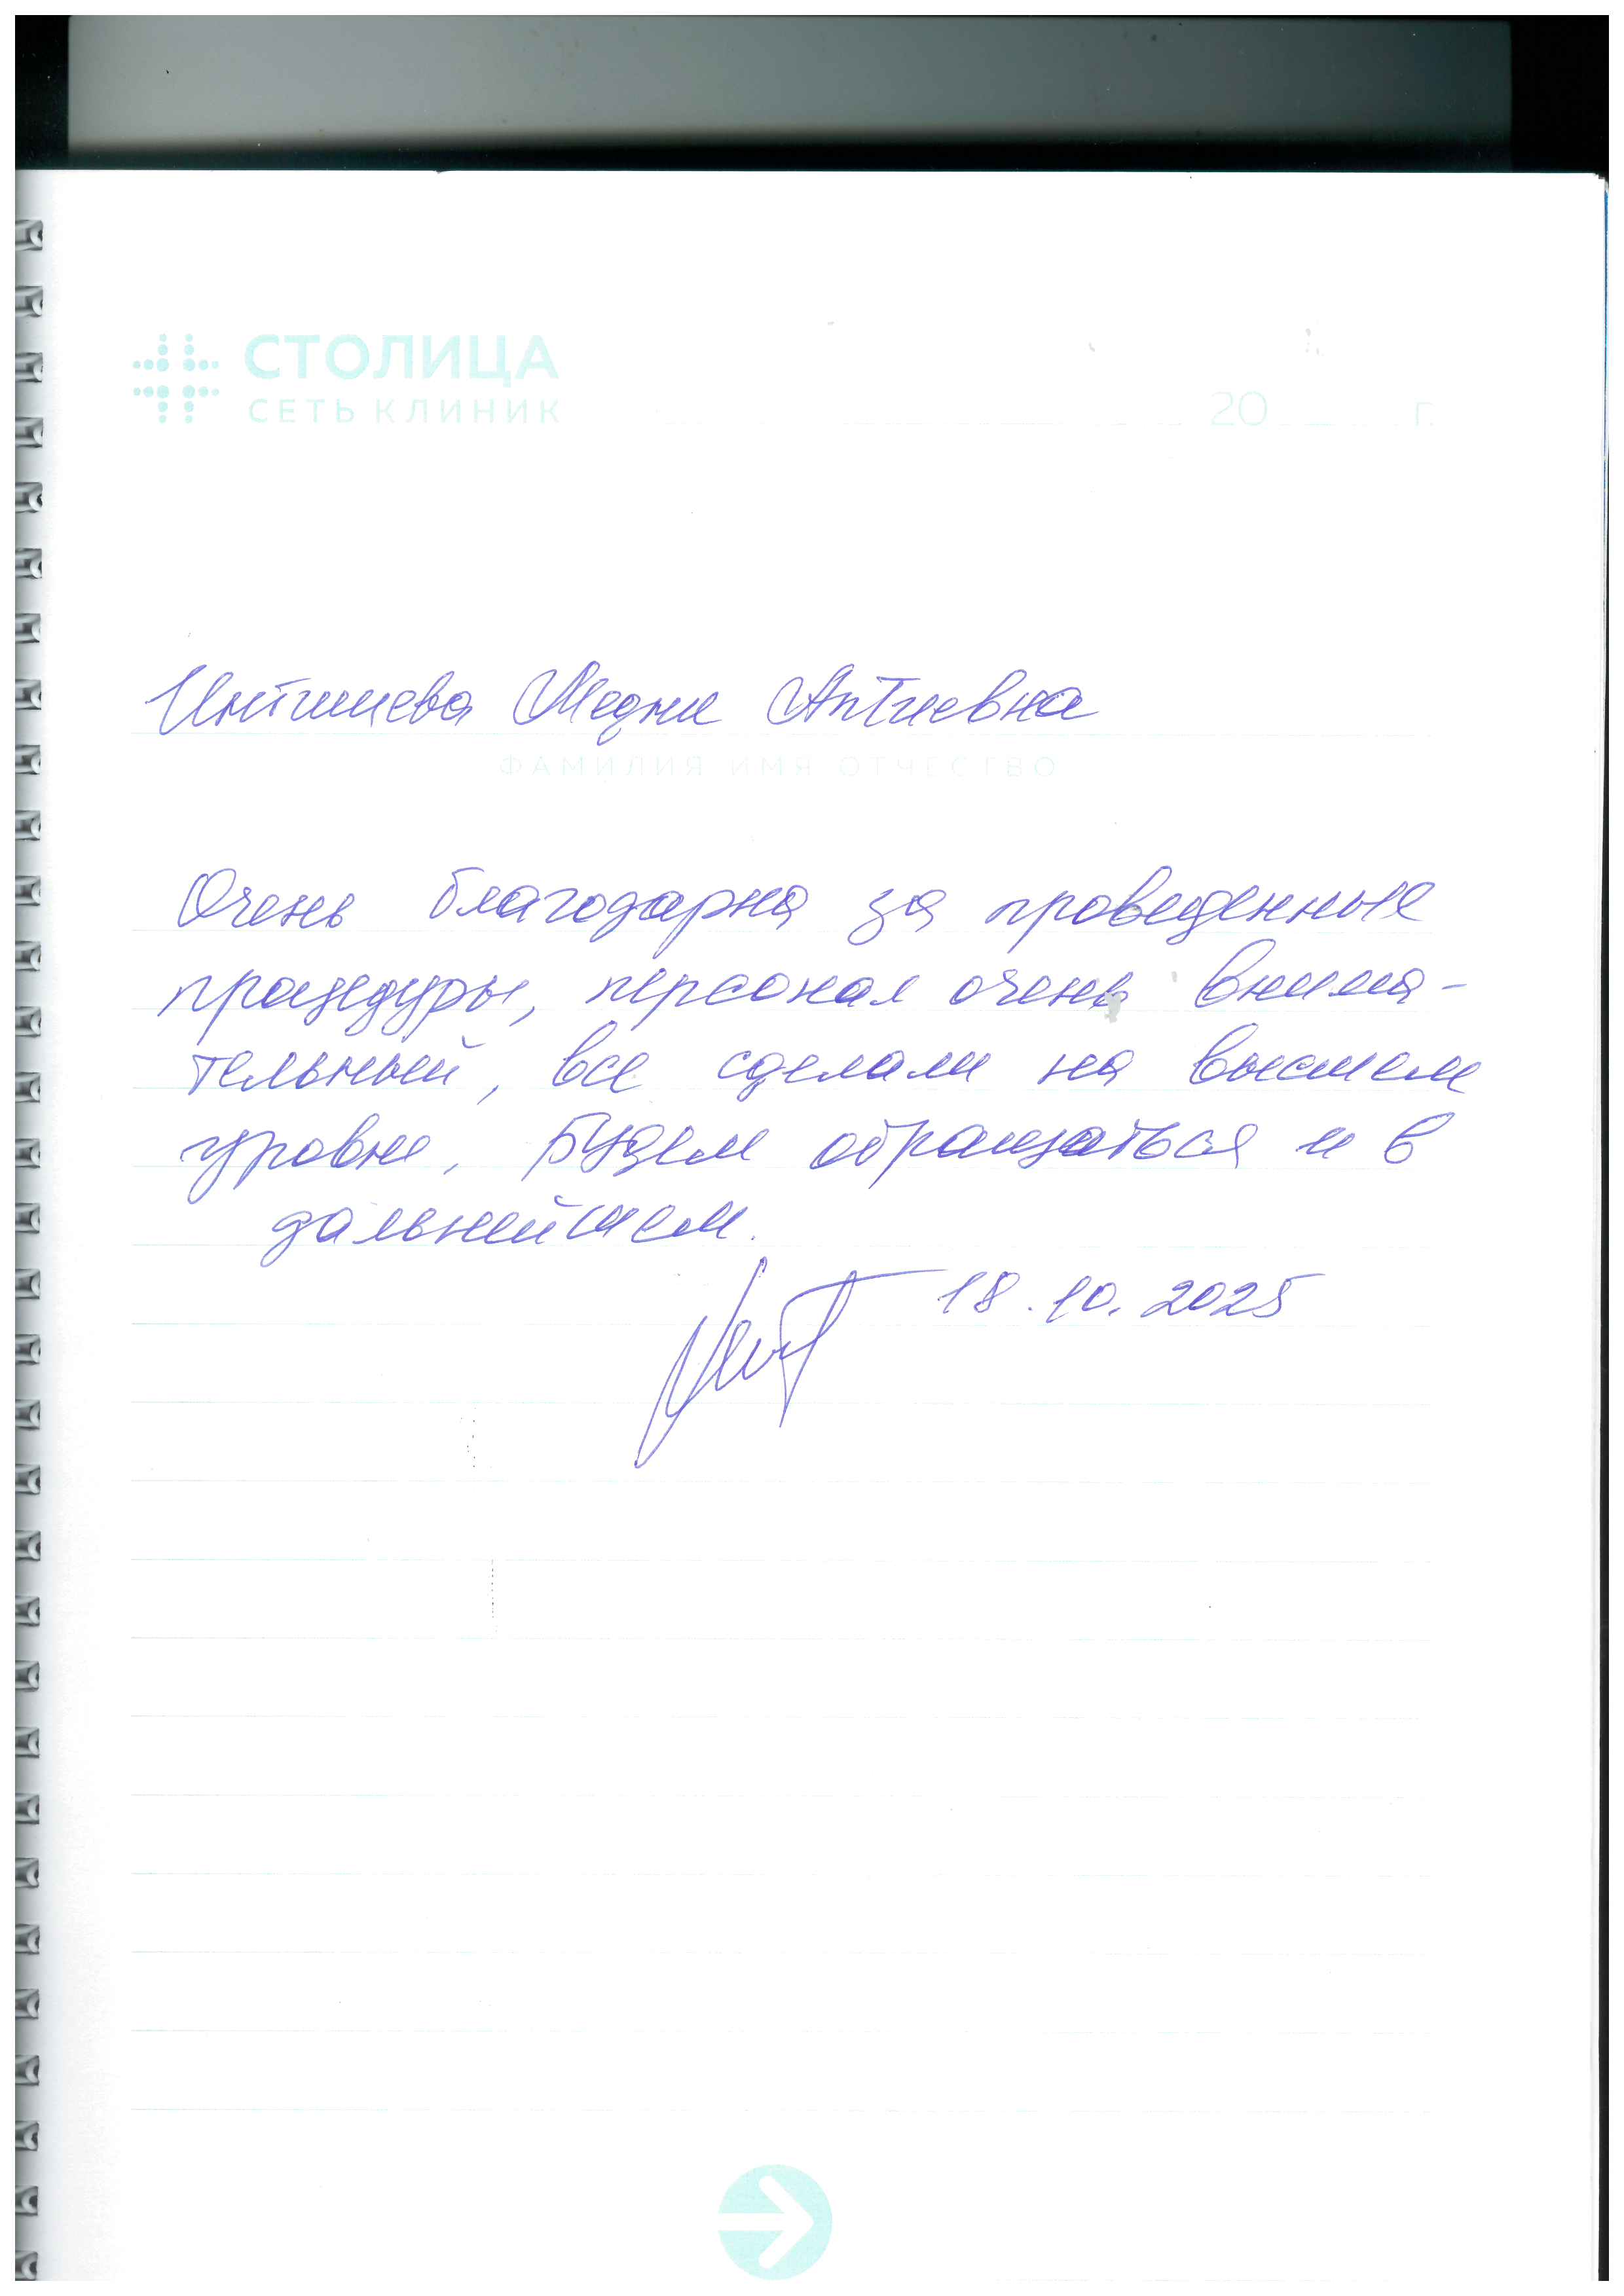 СТОЛИЦА
СЕТЬ КЛИНИК
20 г.
Интишева Медни Аптиевна
ФАМИЛИЯ ИМЯ ОТЧЕСТВО
Очень благодарна за проведенные
процедуры, персонал очень внима-
тельный, все сделали на высшем
уровне, Будем обращаться и в
дальнейшем.
18.10.2025